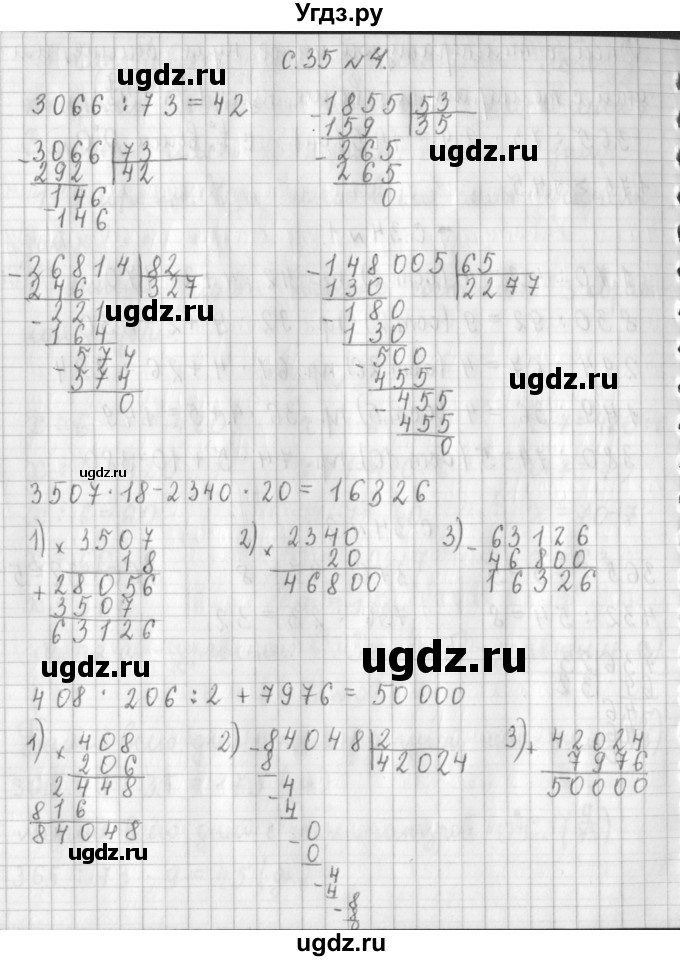 Угдз.ру
с.35 №4.
ugdz.ru
3066 : 73 = 42
-3066 | 73
292 | 42
-146
146
-1855 | 53
159 | 35
-265
265
0
ugdz.ru
-26814 | 82
246 | 327
-221
164
-574
574
0
ugdz.ru
-148005 | 65
130 | 2277
-180
130
-500
455
-455
455
0
ugdz.ru
ugdz.ru
3507 · 18 - 2340 · 20 = 16326
1) × 3507
18
+28056
3507
63126
2) × 2340
20
46800
3) - 63126
46800
16326
ugdz.ru
ugdz.ru
408 · 206 : 2 + 7976 = 50000
1) × 408
206
2448
816
84048
2) -84048 | 2
8 | 42024
-4
4
-0
0
-4
4
-8
8
0
3) + 42024
7976
50000
ugdz.ru
ugdz.ru
ugdz.ru